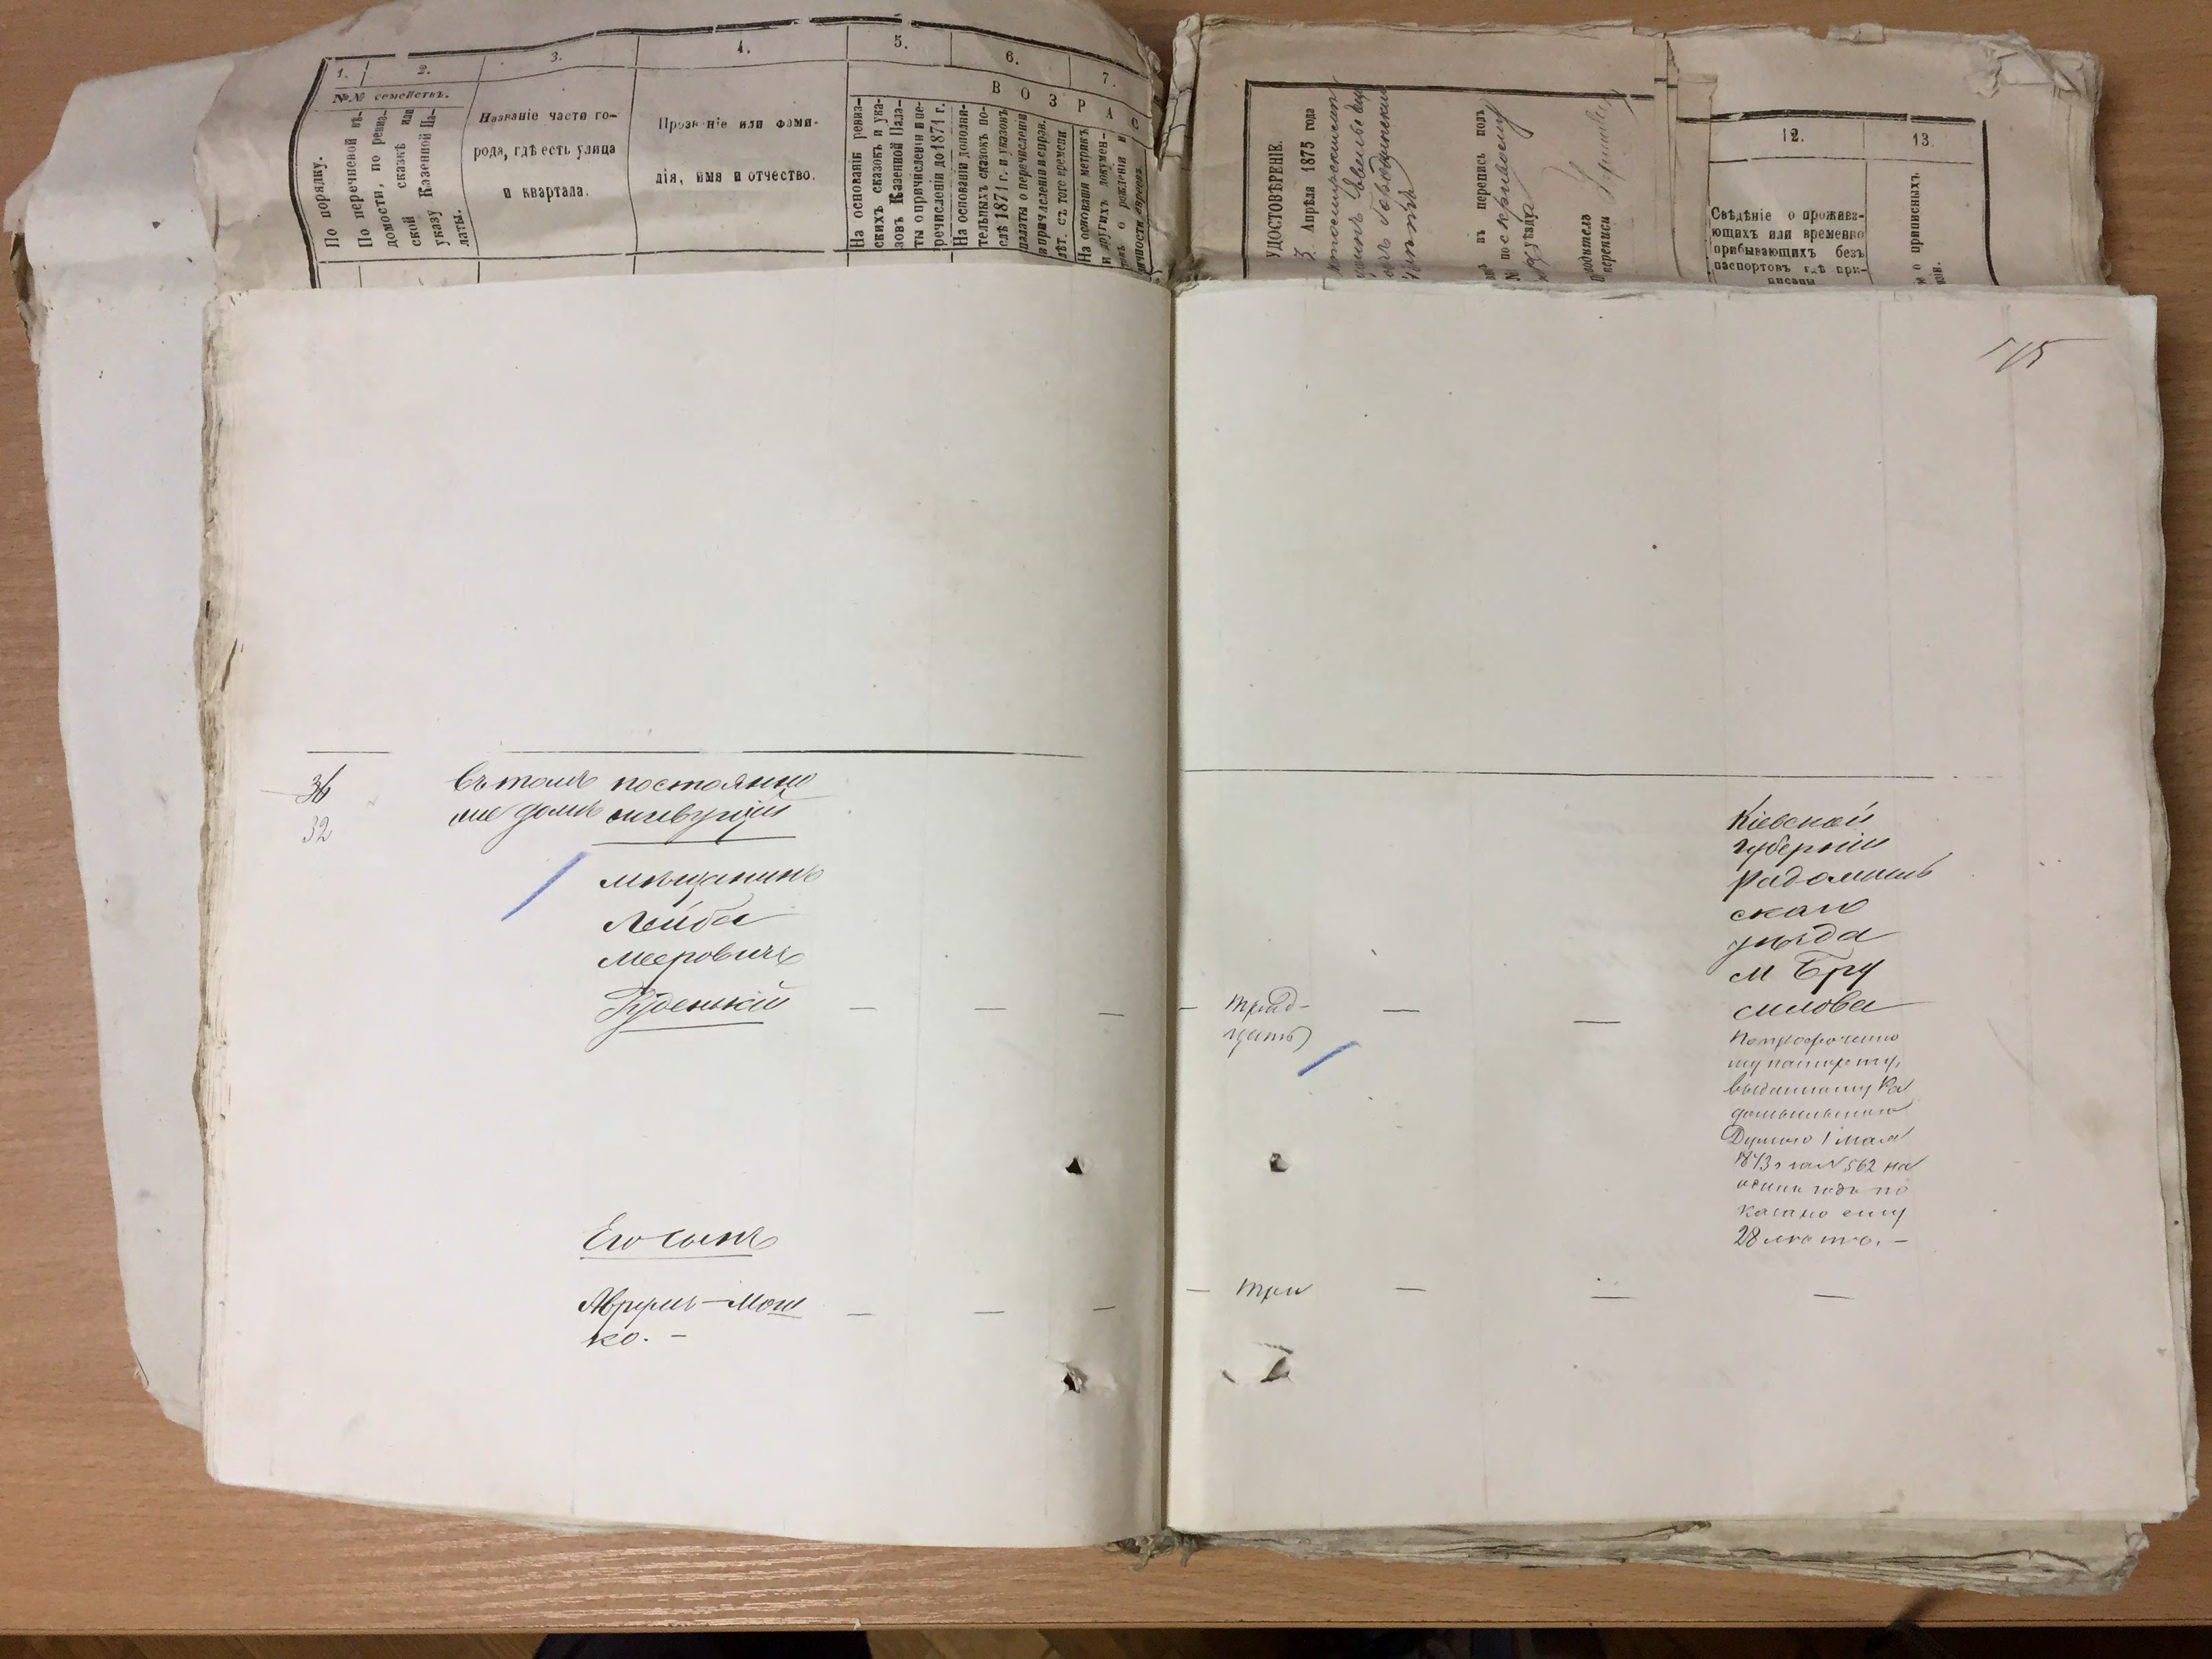 1.
2.
3.
4.
5.
6.
7.
№№ семействъ.
По порядку.
По перечневой вѣ-
домости, по ревиз-
ской сказкѣ или
указу Казенной Па-
латы.
Названіе части го-
рода, гдѣ есть улица
и квартала.
Прозваніе или фами-
лія, имя и отчество.
ВОЗРАС
На основаніи ревиз-
скихъ сказокъ и ука-
зовъ Казенной Пала-
ты о причисленіи и пе-
речисленіи до 1871 г.
На основаніи дополни-
тельныхъ сказокъ по-
слѣ 1871 г. и указовъ
палаты о перечисленіи
и причисленіи и справ.
лѣт. съ того времени
На основаніи метрикъ
и другихъ докумен-
о рожденіи и
личности евреевъ.
УДОСТОВѢРЕНІЕ.
3 Апрѣля 1875 года
въ перепись подъ
№ по
уѣзда
переписи
12.
13.
Свѣдѣніе о прожива-
ющихъ или временно
прибывающихъ безъ
паспортовъ гдѣ при-
писаны
о приписныхъ
36
32
Въ томъ
же домѣ
постоянно
живущій
мѣщанинъ
Лейба
Мееровичъ
Куденькій — — —
— трид- — —
цать
Кіевской
губерніи
Радомысль
скаго
уѣзда
м Бру
силова
По просроченно
му паспорту,
выданному Ра
домысльскою
Думою 1 мая
1873 г за № 562 на
одинъ годъ по
казано ему
28 лѣтъ. —
Его сынъ
Аврумъ-Мош — — —
ко. —
— три — — —